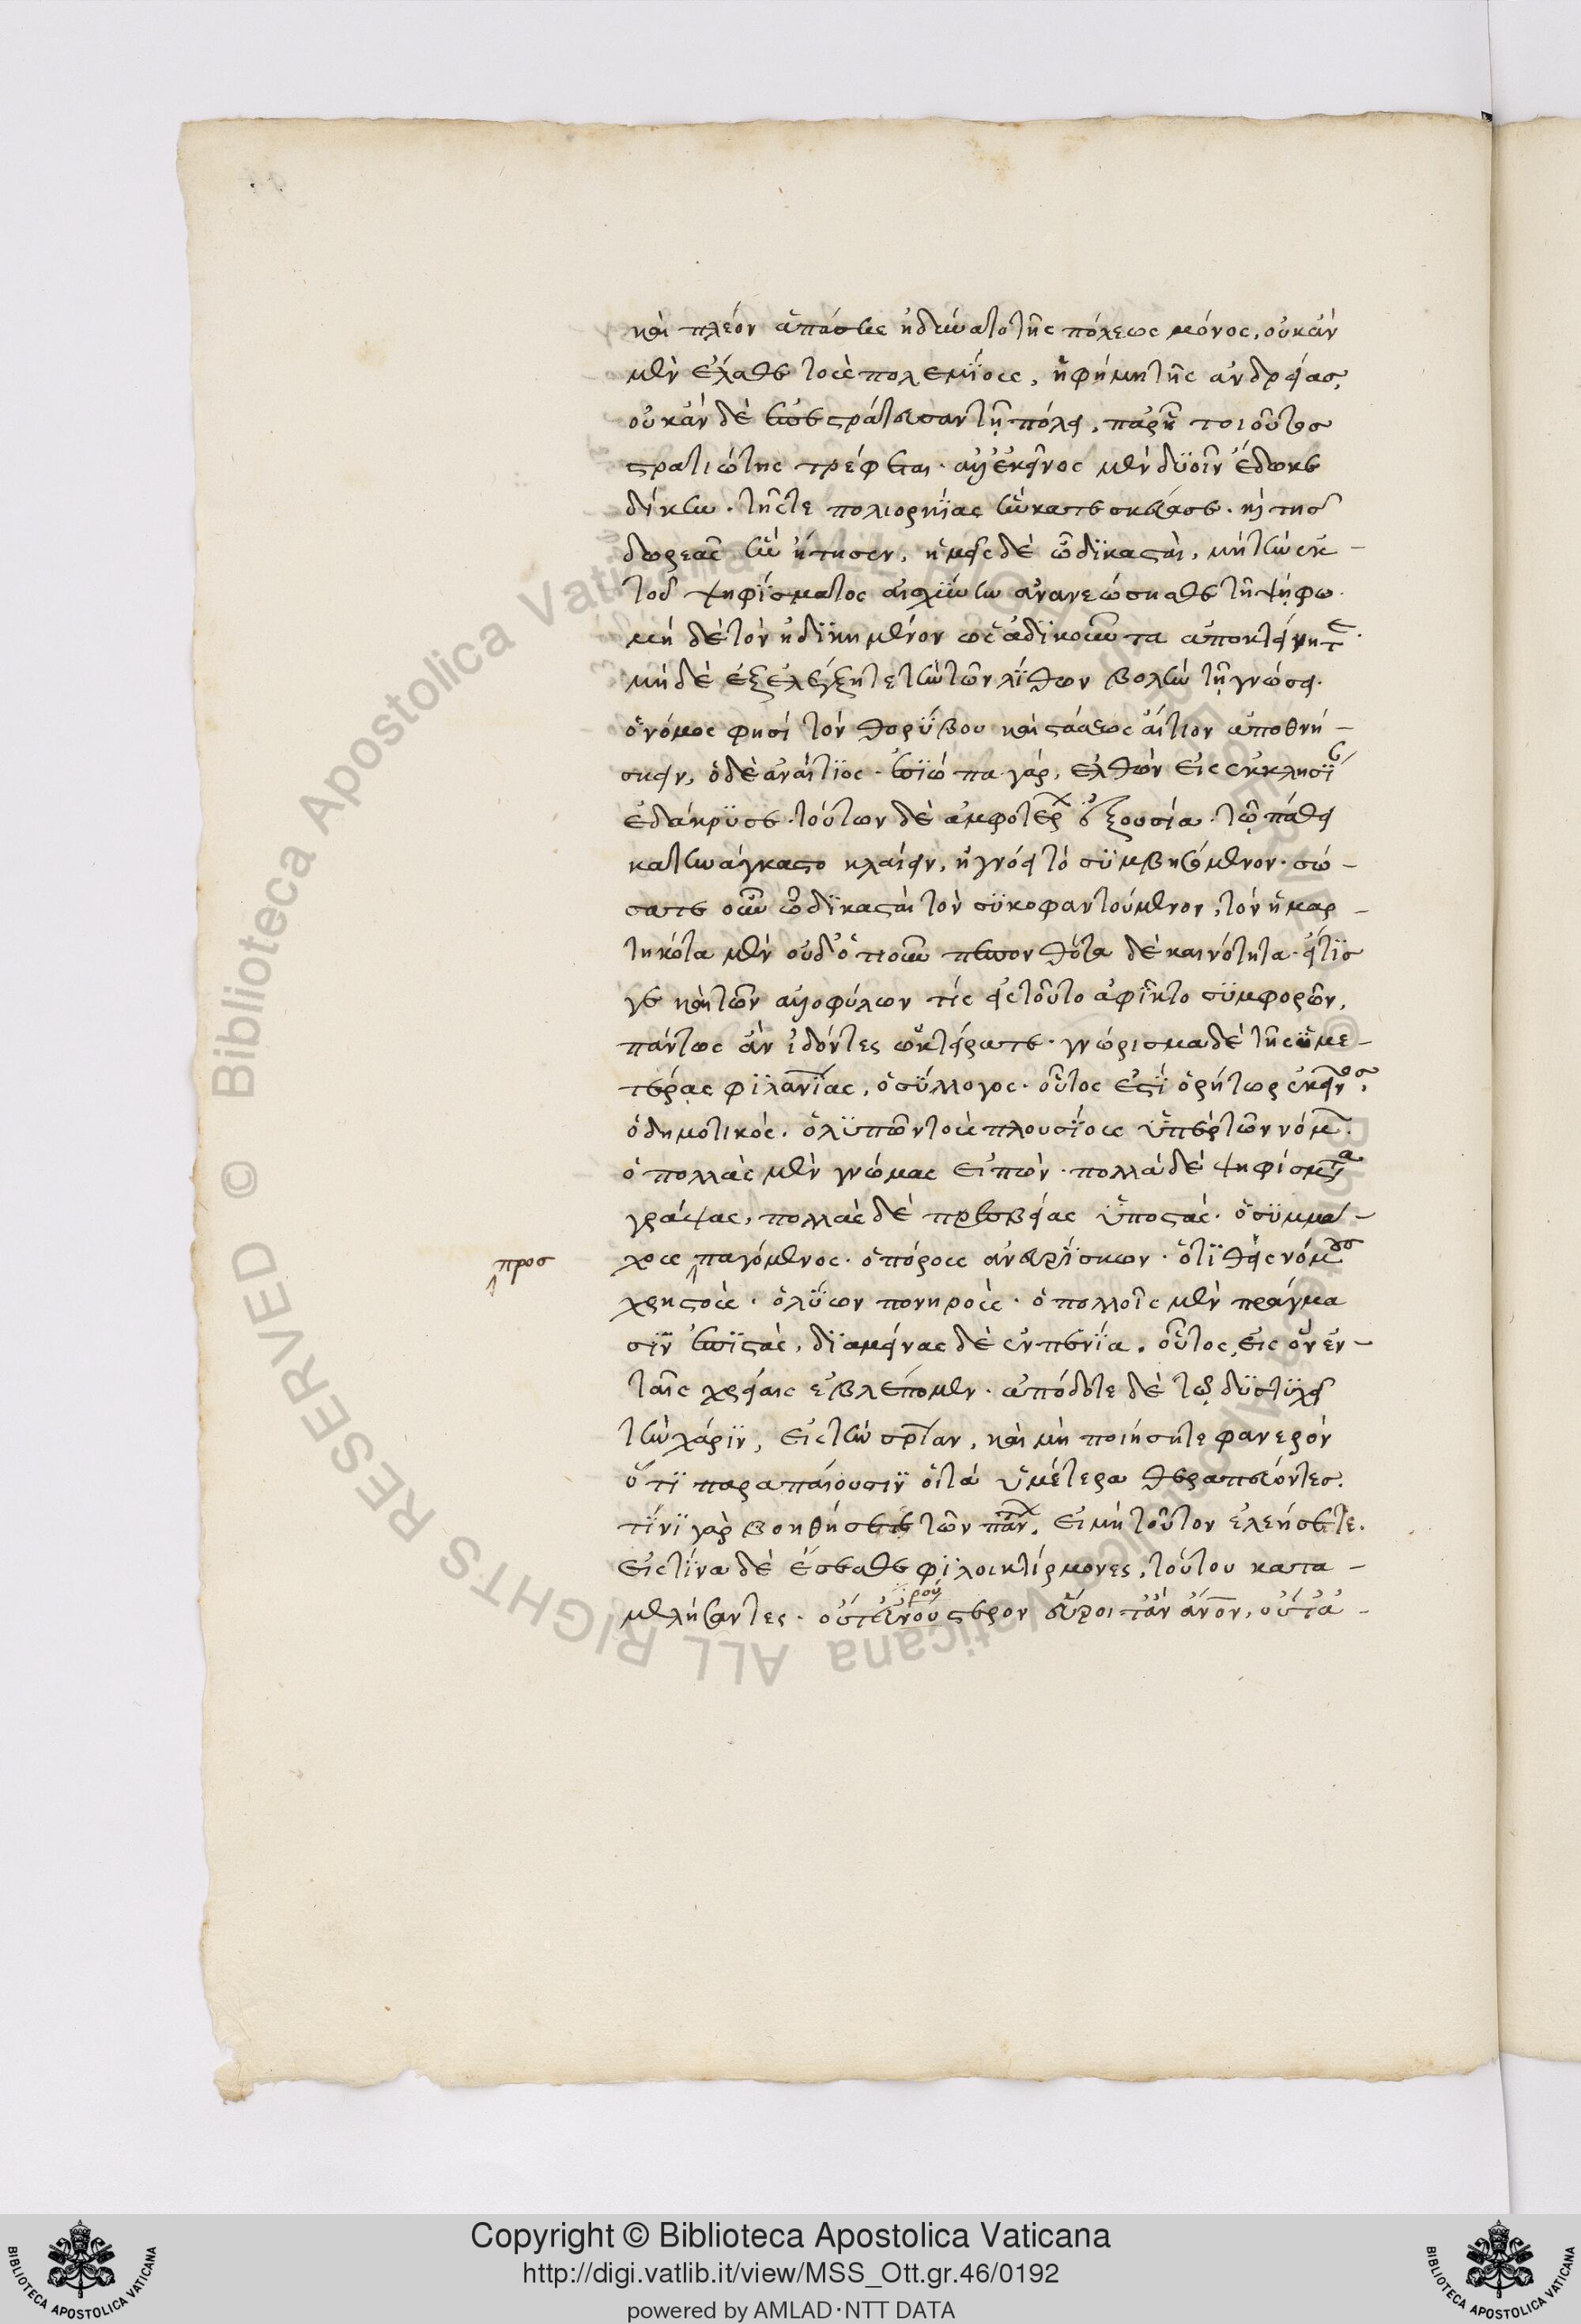 καὶ πλέον ἁπάσης ἠδύνατο τῆς πόλεως μόνος, οὐκ ἂν
μὲν ἔλαθε τοὺς πολεμίους, ἡ φήμη τῆς ἀνδρείας,
οὐκ ἂν δὲ στρατιώτης τρέφεται. ἀλλ' ἐκεῖνος μὲν δυοῖν ἔδωκε
δίκην. τῆς τε πολιορκίας ἣν κατεσκεύασε. καὶ τῆς
δωρεᾶς ἣν ᾔτησεν, ἡμεῖς δὲ ὦ δικασταὶ, μὴ τὴν ἐκ -
τοῦ ψηφίσματος αἰσχύνην ἀνανεώσησθε τῆ ψήφω.
μὴ δὲ τὸν ἠδικημένον ὡς ἀδικοῦντα ἀποκτείνητε.
μὴ δὲ ἐξελέγξητε τὴν τῶν λίθων βολὴν τῆ γνώσει.
ὁ νόμος φησὶ τὸν θορύβου καὶ στάσεως αἴτιον ἀποθνή -
σκειν, ὁ δὲ ἀναίτιος. ἐσιώπα γὰρ, ἐλθὼν εἰς ἐκκλησίαν
ἐδάκρυσε. τούτων δὲ ἀμφοτέρων ἐξουσία. τῶ πάθει
κατηνάγκαστο κλαίειν, ἠγνόει τὸ συμβησόμενον. σώ -
σατε οὖν ὦ δικασταὶ τὸν συκοφαντούμενον, τὸν ἡμαρ -
τηκότα μὲν οὐδ' ὁτιοῦν πεπονθότα δὲ καινότητα. εἴ τις
γε καὶ τῶν ἀλλοφύλων τίς εἰς τοῦτο ἀφῖκτο συμφορῶν,
πάντως ἂν ἰδόντες ὠκτείρατε. γνώρισμα δὲ τῆς ἡμε -
τέρας φιλανίας, ὁ σύλλογος. οὗτος ἐστὶ ὁ ῥήτωρ ἐκεῖνος,
ὁ δημοτικός. ὁ λυπῶν τοὺς πλουσίους ὑπὲρ τῶν νόμ.
ὁ πολλὰς μὲν γνώμας εἰπών. πολλὰ δὲ ψηφίσματα
γράψας, πολλὰς δὲ πρεσβείας ὑποστάς. ὁ συμμά -
χους παγόμενος. ὁ πόρους ἀνευρίσκων. ὁ τιθεὶς νόμους
προσ
χρηστούς. ὁ λύων πονηρούς. ὁ πολλοῖς μὲν πράγμα
σιν ἐπιστὰς, διαμείνας δὲ ἐν πενία. οὗτος, εἰς ὃν ἐν -
ταῖς χρείαις ἐβλέπομεν. ἀπόδοτε δὲ τῶ δυστυχεῖ
τὴν χάριν, εἰς τὴν σρίαν, καὶ μὴ ποιήσητε φανερὸν
ὅτι παραπαίουσιν οἱ τὰ ὑμέτερα θεραπεύοντες.
τίνι γὰρ βοηθήσετε τῶν πάντων, εἰ μὴ τοῦτον ἐλεήσετε.
εἰς τίνα δὲ ἔσεσθε φιλοικτίρμονες, τούτου κατα -
μελήσαντες. εὕροι τ' ἂν ἄνον, οὔτ' ἀ -